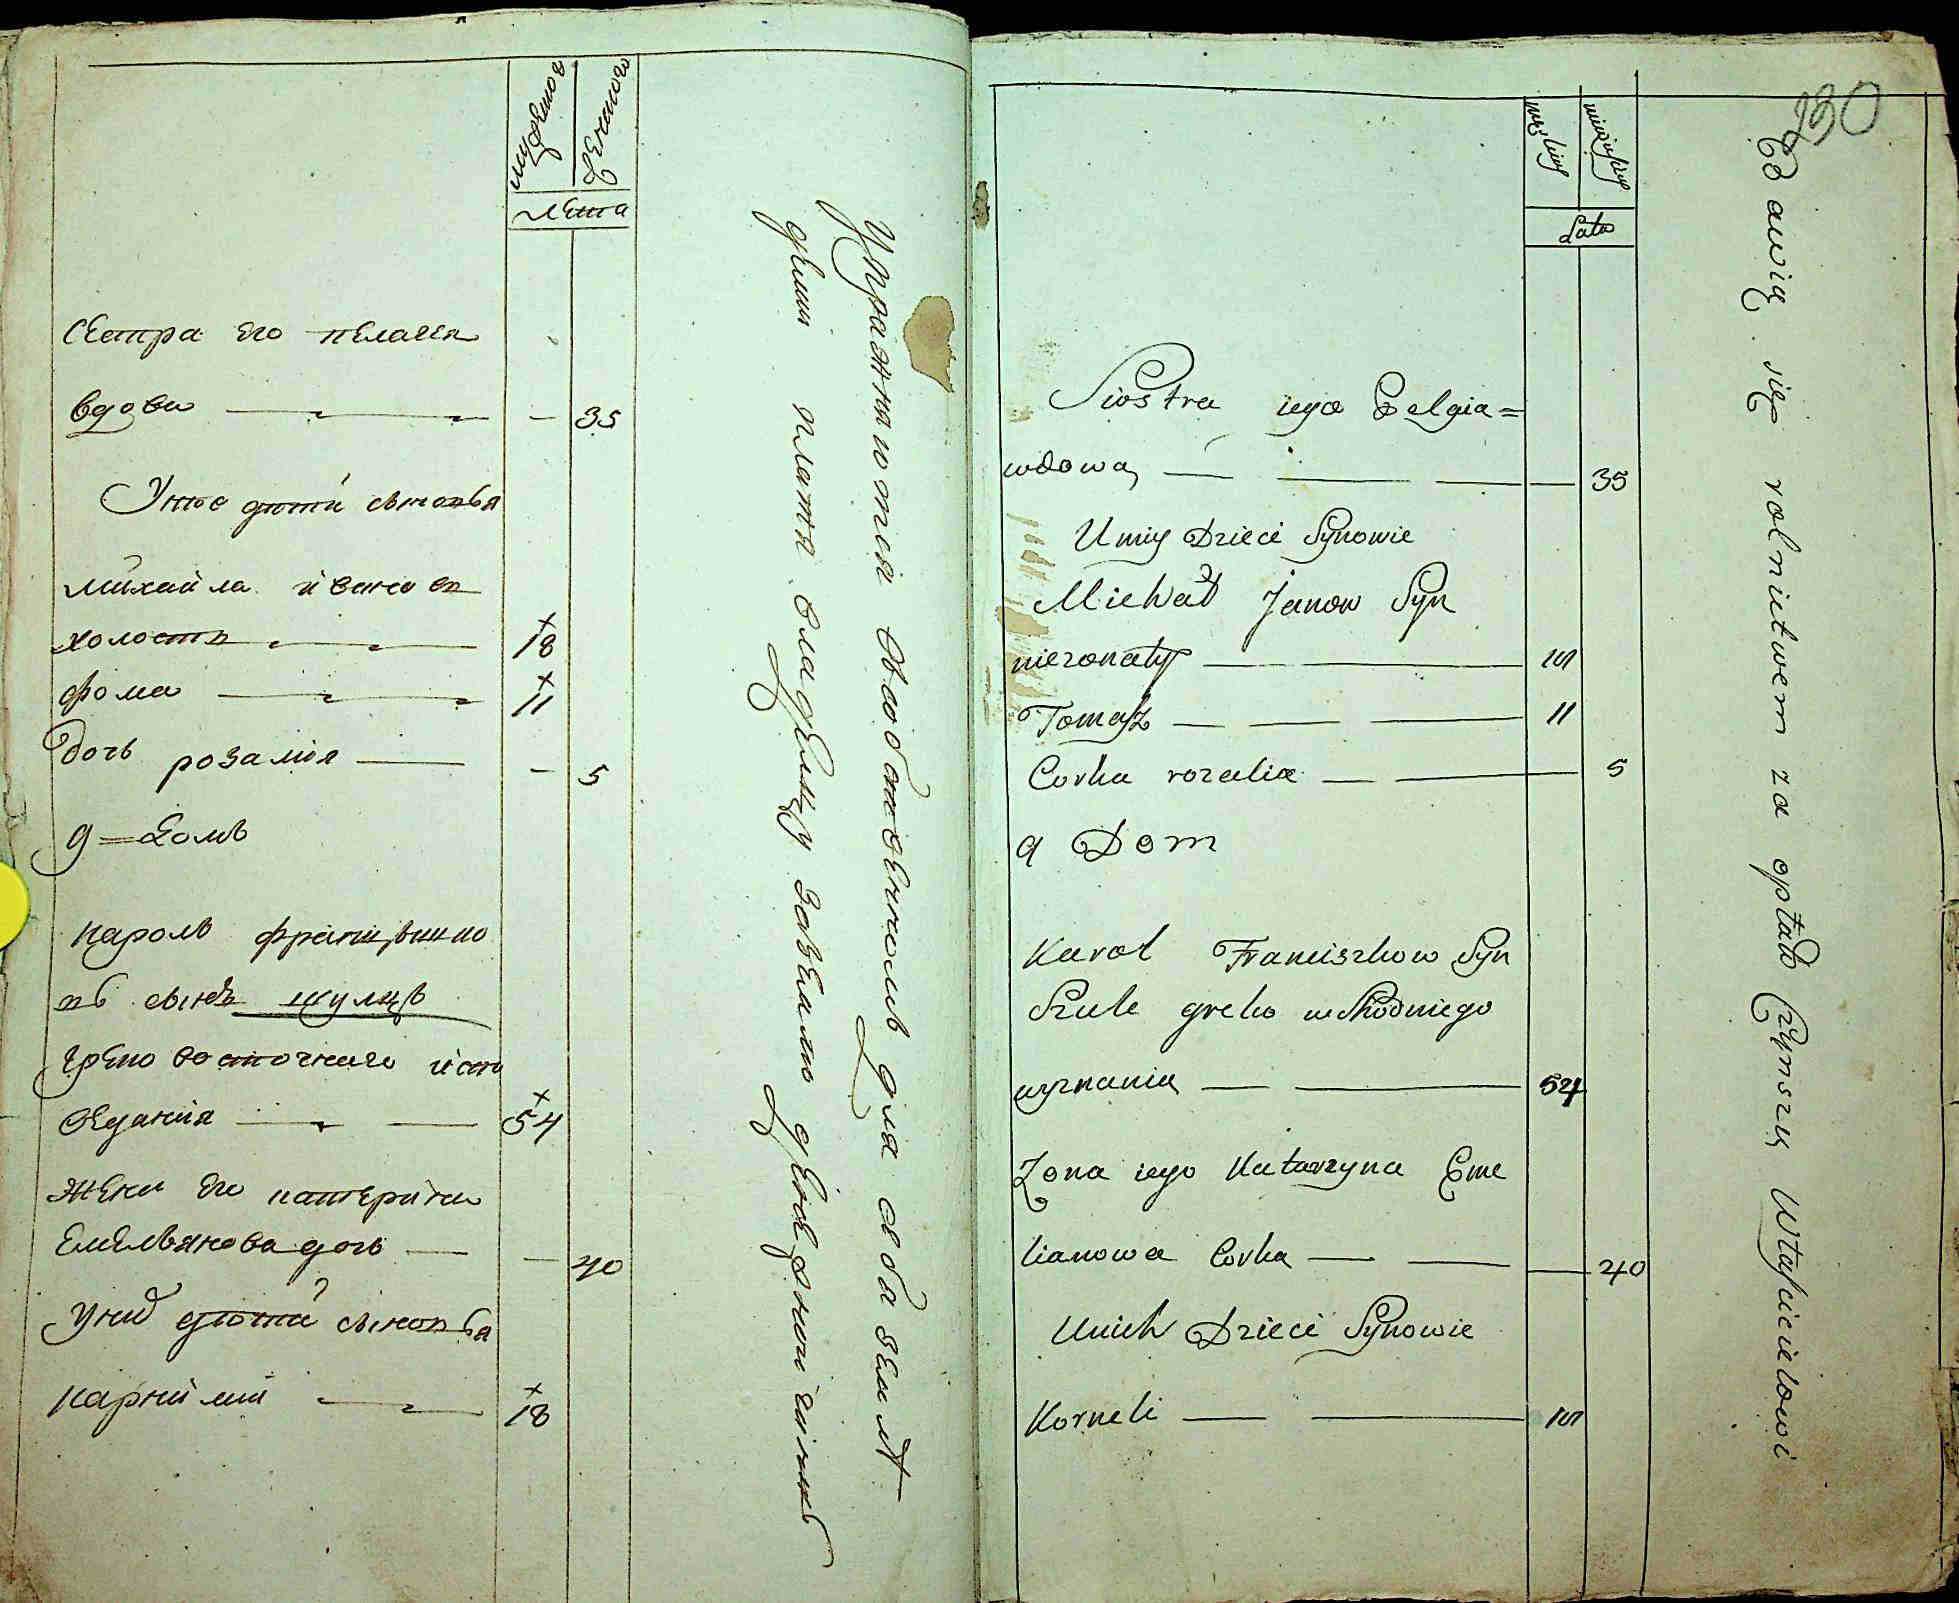 мужеска
женскаго
лета
сестра его пелагия
вдова — — — — 35
У нюс дюти сыновья
михайла иванов
холостъ — — — 18
фома — — — 11
дочь розалия — — 5
9 = домъ
кароль францышко
въ сынъ шульцъ
греко восточнаго испо
ведания — — — 54
жена его катерина
Емельянова дочь — — 40
у них дюти сыновья
карнилий — — 18
Упражняютса въ собственномъ для себя земле
делии платя владельцу
męskiey
lata
230
Siostra iego Pelgia=
wdowa — — — — 35
U niy Dzieci Synowie
Michał Janow Syn
niezonaty — 18
Tomasz — — — 11
Corka rozalia — — 5
9 Dom
Karol Franciszkow Syn
Szulc greko wschodniego
wyznania — — 54
Zona iego Katarzyna Eme
lianowa Corka — — — 40
U nich Dzieci Synowie
Korneli — — 18
Bawią się rolnictwem za opłatą Czynszu Właścicielowi